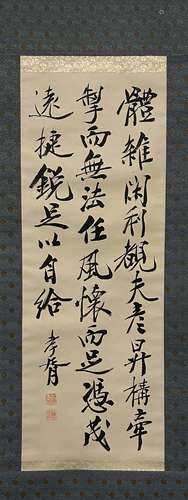 體雖閑利觀夫彥昇構牽
掣而無法任風懷而足憑茂
遠捷銳足以自給
孝胥